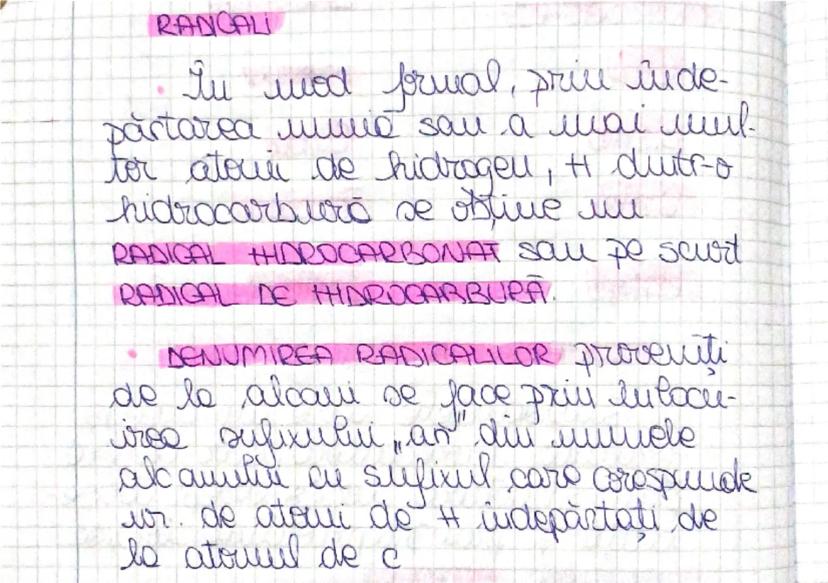 RADICALI
• În mod formal, prin înde-
părtarea unuia sau a mai mul-
tor atomi de hidrogen, H dintr-o
hidrocarbură se obține un
RADICAL HIDROCARBONAT sau pe scurt
RADICAL DE HIDROCARBURĂ.
• DENUMIREA RADICALILOR proveniți
de la alcani se face prin înlocu-
irea sufixului „an" din numele
alcanului cu sufixul care corespunde
nr. de atomi de H îndepărtați de
la atomul de C